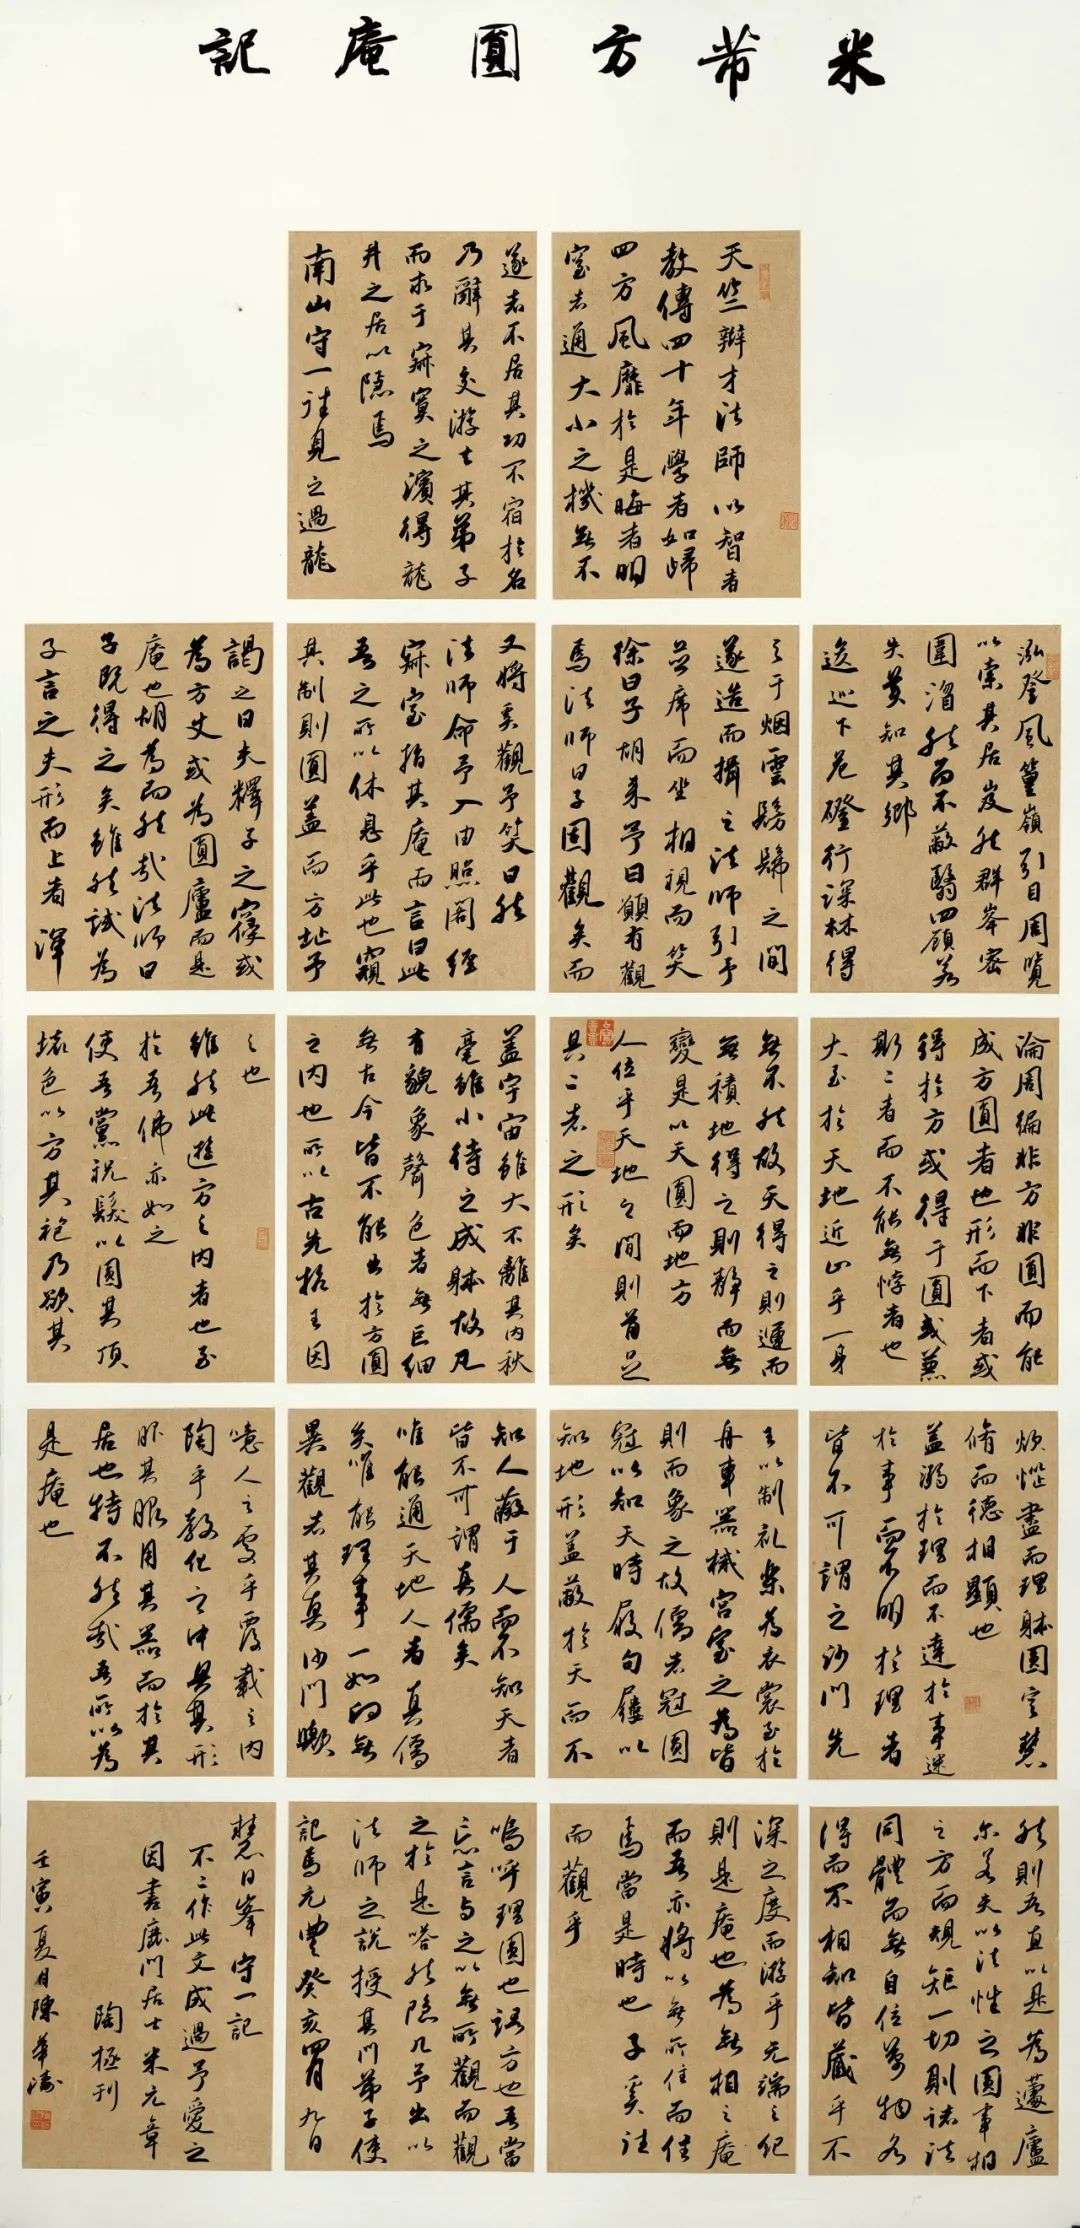 米芾方圓庵記
天竺辯才法師以智者
教傳四十年學者如歸
四方風靡於是晦者明
窒者通大小之機無不
遂者不居其功不宿於名
乃辭其交游去其弟子
而求于寂寞之濱得龍
井之居以隱焉
南山守一往見之過龍
泓登風篁嶺引目周覽
以索其居岌然群峯密
圍溜然而不蔽翳四顧若
失莫知其鄉
逡巡下危磴行深林得
之于烟雲髣髴之間
遂造而揖之法師引予
並席而坐相視而笑
徐曰子胡來予曰願有觀
焉法師曰子固觀矣而
又將奚觀予笑曰然
法師命予入由照閣經
寂室指其庵而言曰此
吾之所以休息乎此也窺
其制則圓蓋而方址予
謁之曰夫釋子之寢或
為方丈或為圓廬而是
庵也胡為而然哉法師曰
子既得之矣雖然試為
子言之夫形而上者渾
淪周徧非方非圓而能
成方圓者也形而下者或
得於方或得于圓或兼
斯二者而不能無悖者也
大至於天地近止乎一身
無不然故天得之則運而
無積地得之則靜而無
變是以天圓而地方
人位乎天地之間則首足
具二者之形矣
蓋宇宙雖大不離其内秋
毫雖小待之成體故凡
有貌象聲色者無巨細
無古今皆不能出於方圓
之内也所以古先哲王因
之也
雖然此遊方之内者也至
於吾佛亦如之
使吾黨祝髮以圓其頂
壞色以方其袍乃欲其
煩惱盡而理體圓定慧
脩而德相顯也
蓋溺於理而不達於事迷
於事而不明於理者
皆不可謂之沙門先
王以制礼樂為衣裳至於
舟車器械宮室之為皆
則而象之故儒者冠圓
冠以知天時履句屨以
知地形蓋蔽於天而不
知人蔽于人而不知天者
皆不可謂真儒矣
唯能通天地人者真儒
矣唯能理事一如向無
異觀者其真沙門歟
噫人之處乎覆載之内
陶乎教化之中具其形
服其服用其器而於其
居也特不然哉吾所以為
是庵也
然則吾直以是為蘧廬
尒若夫以法性之圓事相
之方而規矩一切則諸法
同體而無自位萬物各
得而不相知皆藏乎不
深之度而游乎无端之紀
則是庵也為無相之庵
而吾亦將以無所住而住
焉當是時也子奚往
而觀乎
嗚呼理圓也語方也吾當
忘言與之以無所觀而觀
之於是嗒然隱几予出以
法師之說授其門弟子使
記焉元豐癸亥四月九日
慧日峯守一記
不二作此文成過予愛之
因書鹿門居士米元章
陶拯刊
壬寅夏月陳華濤